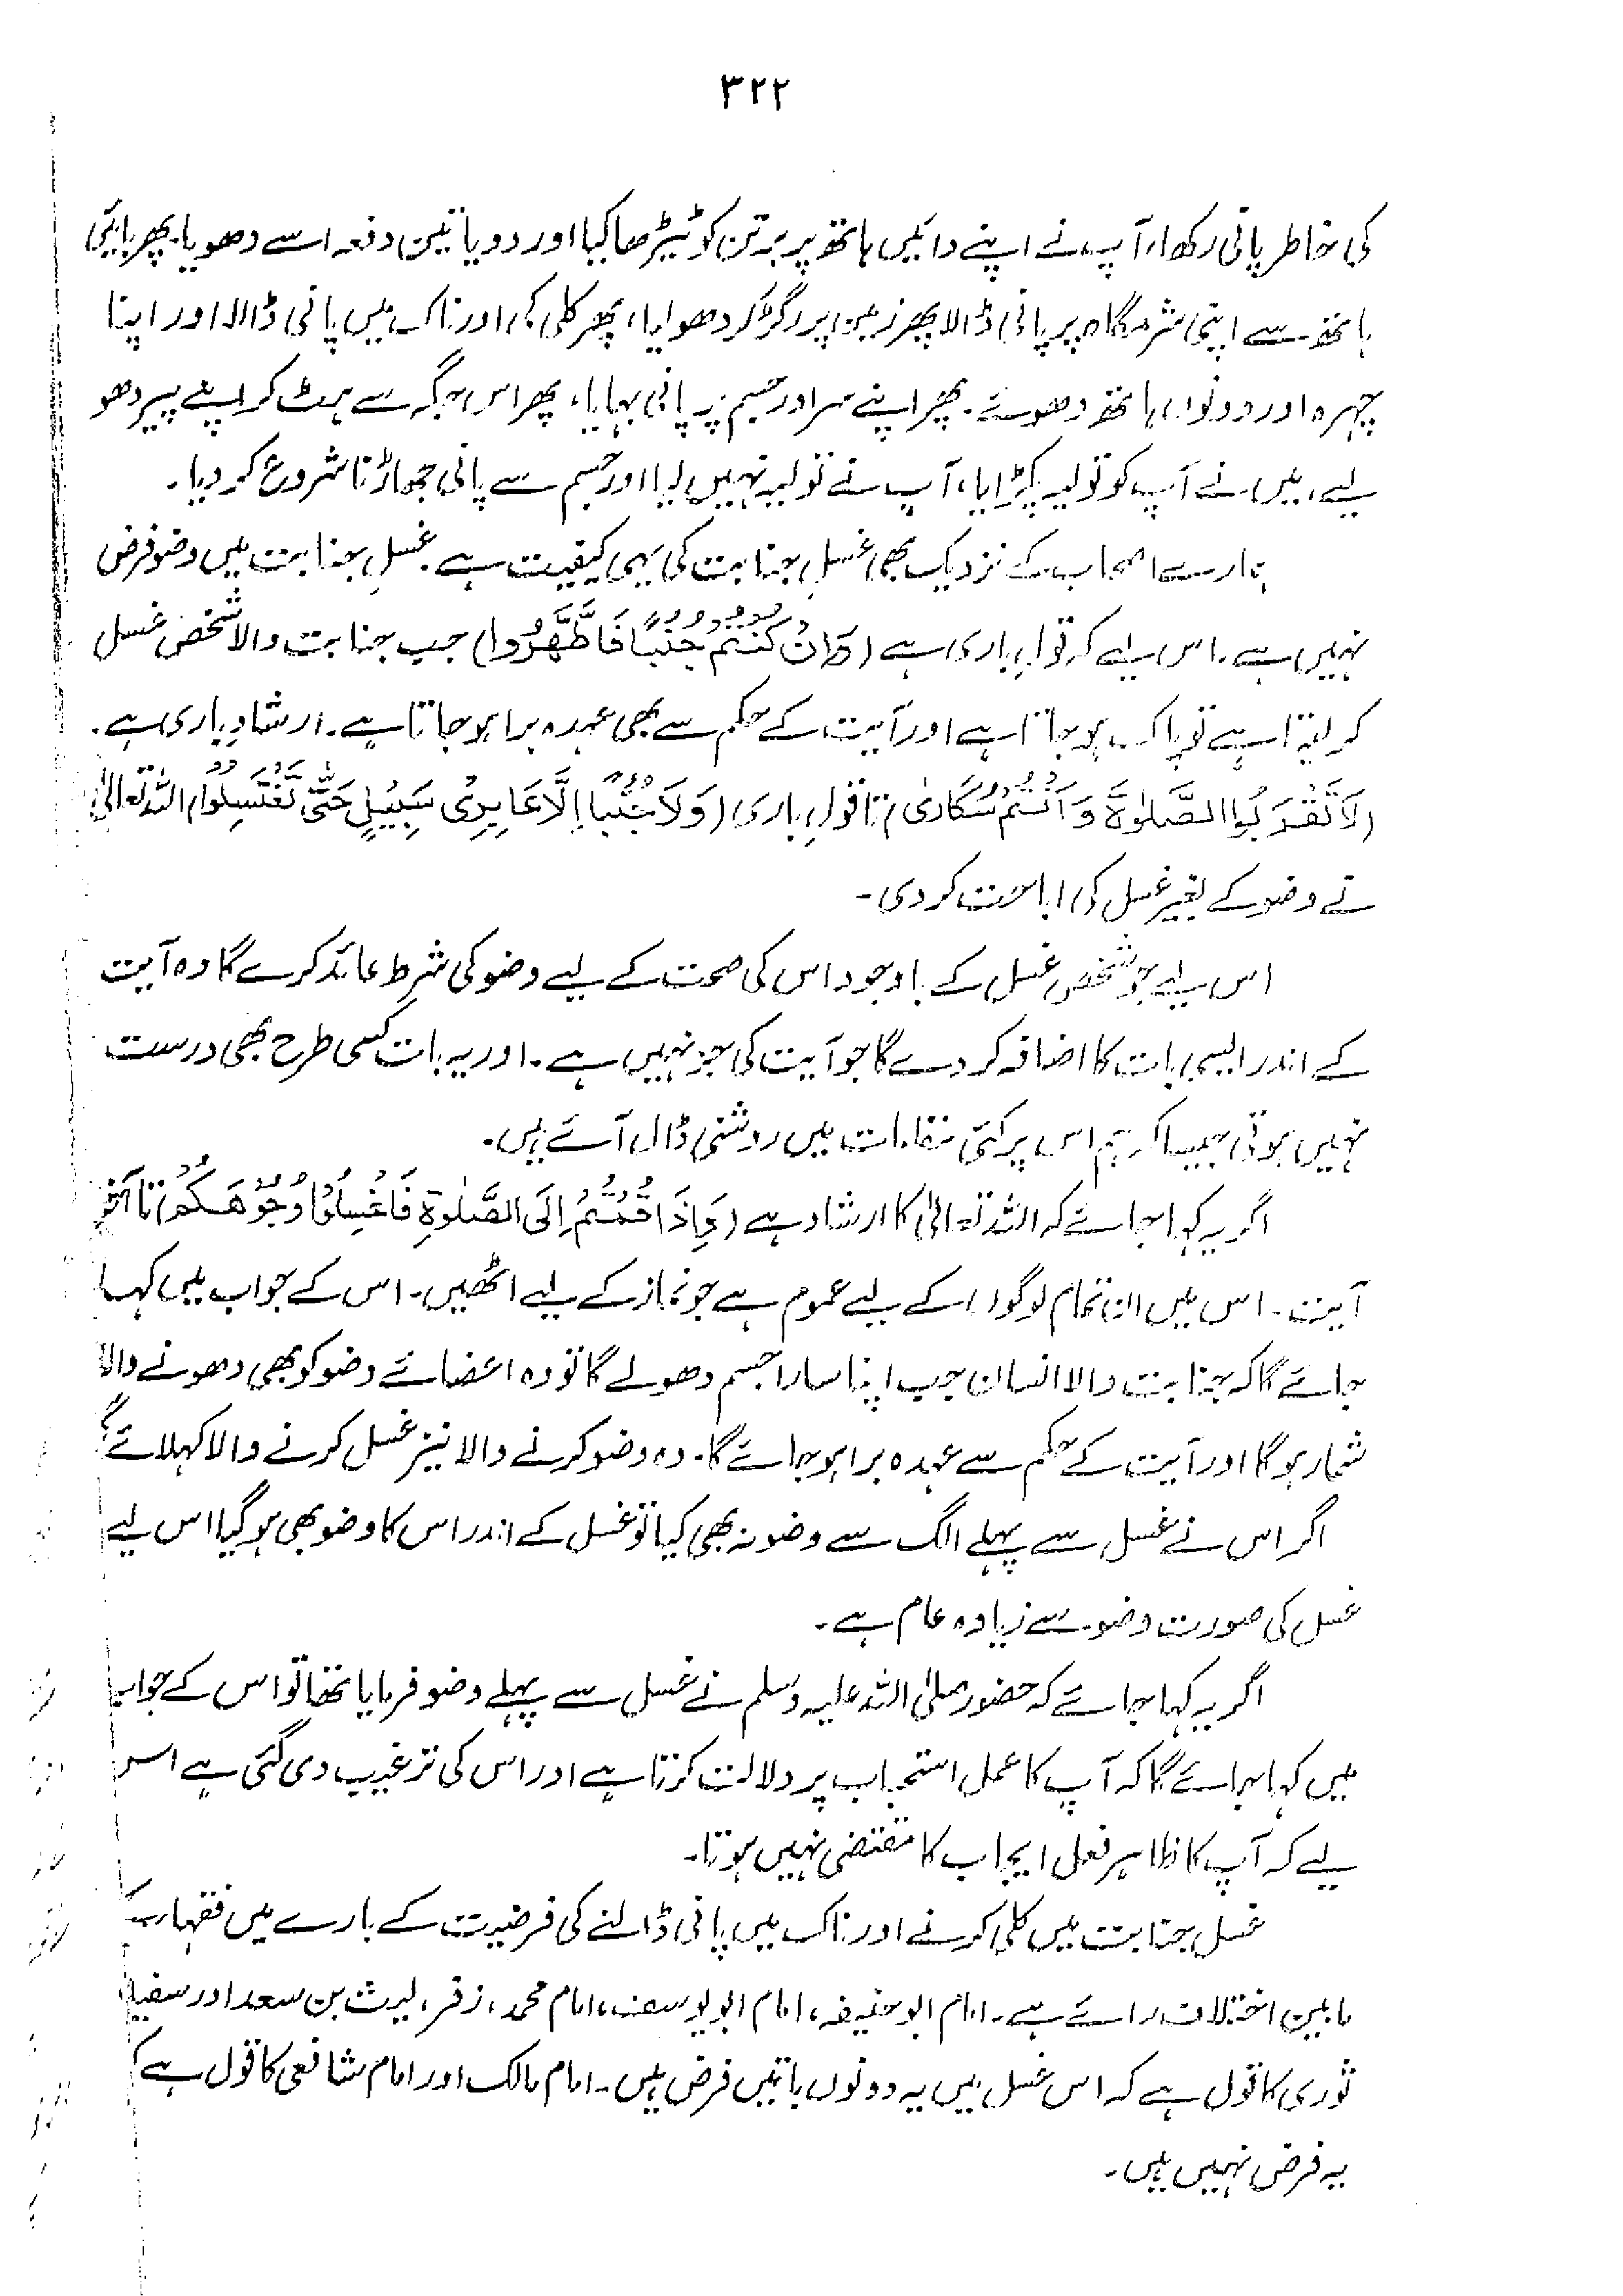 ۳۲۲
کی خاطر پانی رکھا، آپ نے اپنے دائیں ہاتھ پر برتن کو ٹیڑھا کیا اور دو یا تین دفعہ اسے دھویا۔ پھر بائیں
ہاتھ سے اپنی شرمگاہ پر پانی ڈالا پھر زمین پر رگڑ کر دھویا، پھر کلی کی اور ناک میں پانی ڈالا اور اپنا
چہرہ اور دونوں ہاتھ دھوئے۔ پھر اپنے سر اور جسم پر پانی بہایا، پھر اس جگہ سے ہٹ کر اپنے پیر دھو
لیے، میں نے آپ کو تولیہ پکڑایا، آپ نے تولیہ نہیں لیا اور جسم سے پانی جھاڑنا شروع کر دیا۔
ہمارے اصحاب کے نزدیک بھی غسلِ جنابت کی یہی کیفیت ہے۔ غسلِ جنابت میں وضو فرض
نہیں ہے۔ اس لیے کہ قولِ باری ہے (وَاِنْ كُنْتُمْ جُنُبًا فَاطَّهَّرُوا) جب جنابت والا شخص غسل
کر لیتا ہے تو پاک ہو جاتا ہے اور آیت کے حکم سے بھی عہدہ برا ہو جاتا ہے۔ ارشادِ باری ہے۔
(لَا تَقْرَبُوا الصَّلٰوةَ وَاَنْتُمْ سُكَارٰى) تا قولِ باری (وَلَا جُنُبًا اِلَّا عَابِرِىْ سَبِيْلٍ حَتّٰى تَغْتَسِلُوْا) اللہ تعالیٰ
نے وضو کے بغیر غسل کی اباحت کر دی۔
اس لیے جو شخص غسل کے باوجود اس کی صحت کے لیے وضو کی شرط عائد کرے گا وہ آیت
کے اندر ایسی بات کا اضافہ کر دے گا جو آیت کی جز نہیں ہے۔ اور یہ بات کسی طرح بھی درست
نہیں ہوتی جیسا کہ ہم اس پر کئی مقامات میں روشنی ڈال آئے ہیں۔
اگر یہ کہا جائے کہ اللہ تعالیٰ کا ارشاد ہے (فَاِذَا قُمْتُمْ اِلَى الصَّلٰوةِ فَاغْسِلُوْا وُجُوْهَكُمْ) تا آخرِ
آیت۔ اس میں ان تمام لوگوں کے لیے عموم ہے جو نماز کے لیے اٹھیں۔ اس کے جواب میں کہا
جائے گا کہ جنابت والا انسان جب اپنا سارا جسم دھولے گا تو وہ اعضائے وضو کو بھی دھونے والا
شمار ہوگا اور آیت کے حکم سے عہدہ برا ہو جائے گا۔ وہ وضو کرنے والا نیز غسل کرنے والا کہلائے گا
اگر اس نے غسل سے پہلے الگ سے وضو نہ بھی کیا تو غسل کے اندر اس کا وضو بھی ہو گیا اس لیے
غسل کی صورت وضو سے زیادہ عام ہے۔
اگر یہ کہا جائے کہ حضور صلی اللہ علیہ وسلم نے غسل سے پہلے وضو فرمایا تھا تو اس کے جواب
میں کہا جائے گا کہ آپ کا عمل استحباب پر دلالت کرتا ہے اور اس کی ترغیب دی گئی ہے اس
لیے کہ آپ کا ظاہر فعل ایجاب کا مقتضی نہیں ہوتا۔
غسل جنابت میں کلی کرنے اور ناک میں پانی ڈالنے کی فرضیت کے بارے میں فقہاء کے
مابین اختلاف رائے ہے۔ امام ابوحنیفہ، امام ابویوسف، امام محمد، زفر، لیث بن سعد اور سفیان
ثوری کا قول ہے کہ اس غسل میں یہ دونوں باتیں فرض ہیں۔ امام مالک اور امام شافعی کا قول ہے کہ
یہ فرض نہیں ہیں۔